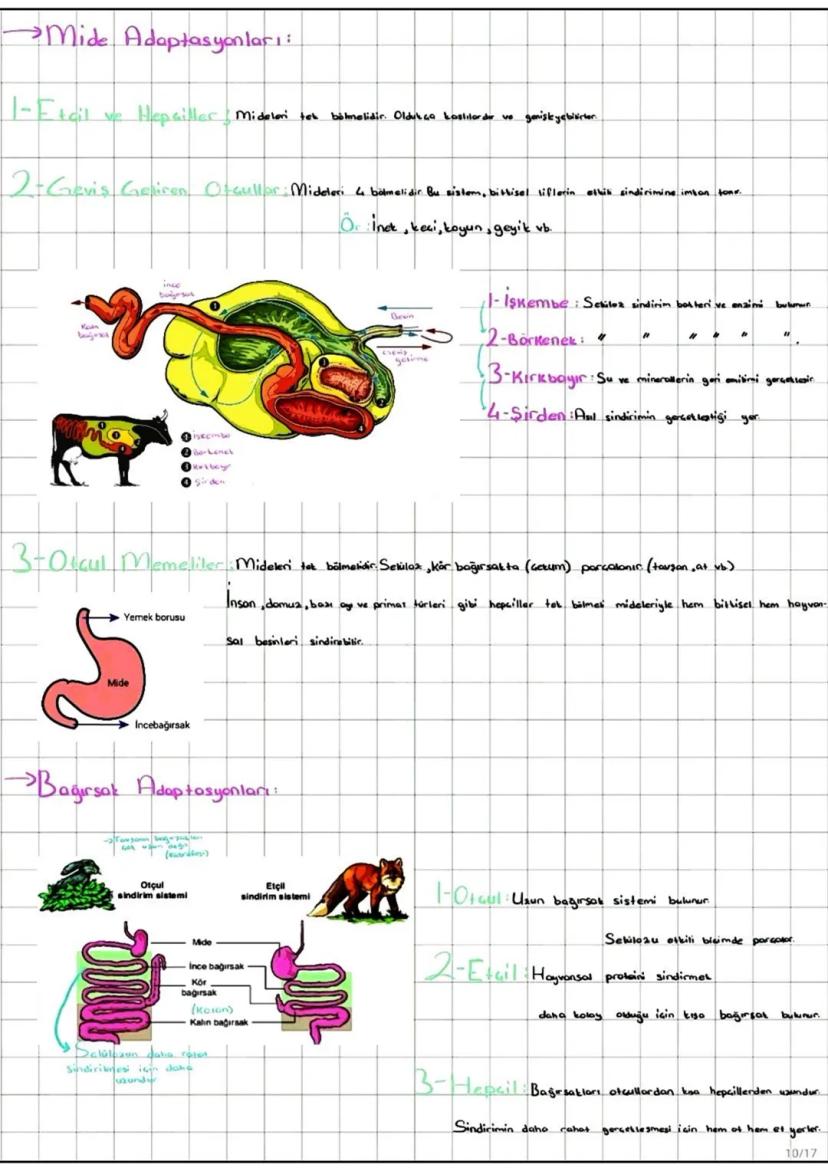 →Mide Adaptasyonları:
1-Etçil ve Hepçiller; Mideleri tek bölmelidir. Oldukça kaslılardır ve genişleyebilirler.
2-Geviş Getiren Otçullar: Mideleri 4 bölmelidir. Bu sistem, bitkisel liflerin etkili sindirimine imkan tanır.
Ör: İnek, keçi, koyun, geyik vb.
ince bağırsak
Kalın bağırsak
Besin
geviş getirme
1
2
3
4
1 işkembe
2 Börkenek
3 Kırkbayır
4 Şirden
1-İşkembe: Selüloz sindirim bakteri ve enzimi bulunur.
2-Börkenek: " " " " " ".
3-Kırkbayır: Su ve minerallerin geri emilimi gerçekleşir.
4-Şirden: Asıl sindirimin gerçekleştiği yer.
3-Otçul Memeliler: Mideleri tek bölmelidir. Selüloz, kör bağırsakta (çekum) parçalanır. (tavşan, at vb)
İnsan, domuz, bazı ayı ve primat türleri gibi hepçiller tek bölmeli mideleriyle hem bitkisel hem hayvan-
sal besinleri sindirebilir.
Yemek borusu
Mide
İncebağırsak
→Bağırsak Adaptasyonları:
→Tavşanın bağırsakları
çok uzun değil
Otçul
sindirim sistemi
Etçil
sindirim sistemi
Mide
İnce bağırsak
Kör
bağırsak
(Kolon)
Kalın bağırsak
Selülozun daha rahat
sindirilmesi için daha
uzundur
1-Otçul: Uzun bağırsak sistemi bulunur.
Selülozu etkili biçimde parçalar.
2-Etçil: Hayvansal proteini sindirmek
daha kolay olduğu için kısa bağırsak bulunur.
3-Hepçil: Bağırsakları otçullardan kısa hepçillerden uzundur.
Sindirimin daha rahat gerçekleşmesi için hem ot hem et yerler.
10/17